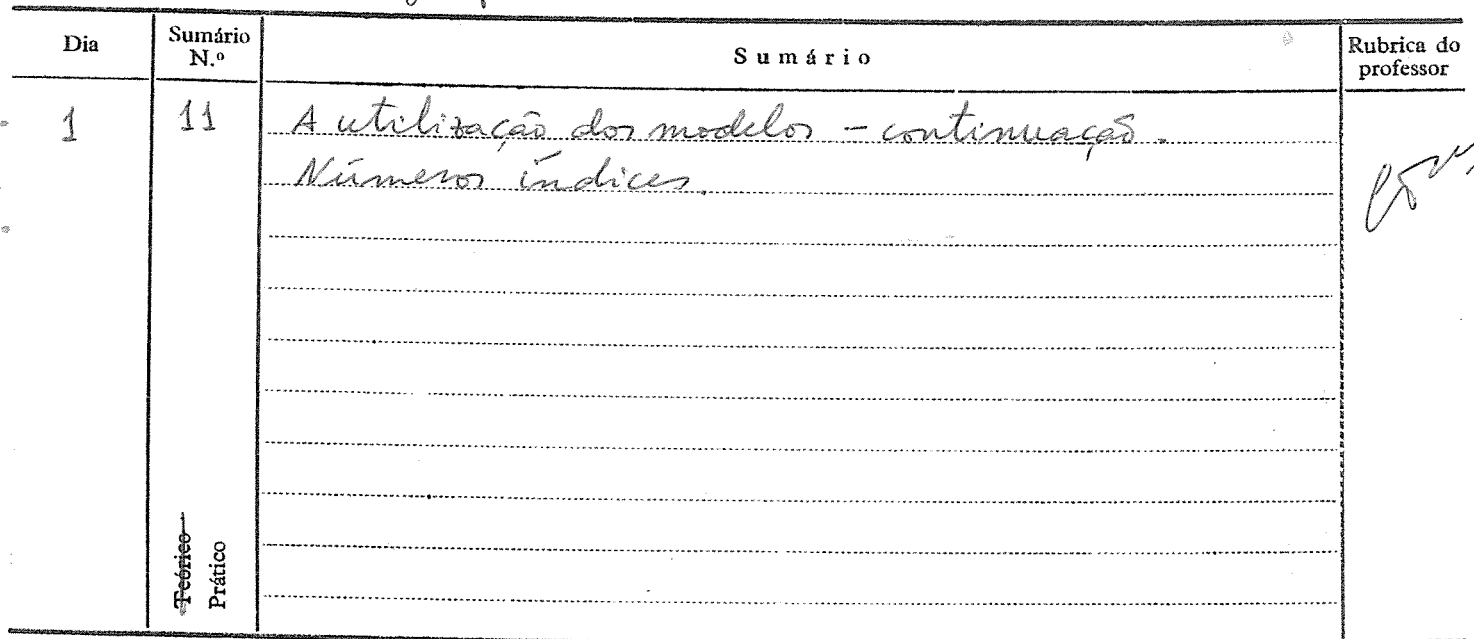 Dia
Sumário N.º
Sumário
Rubrica do professor
1
11
A utilização dos modelos - continuação.
Números índices.
Teórico
Prático